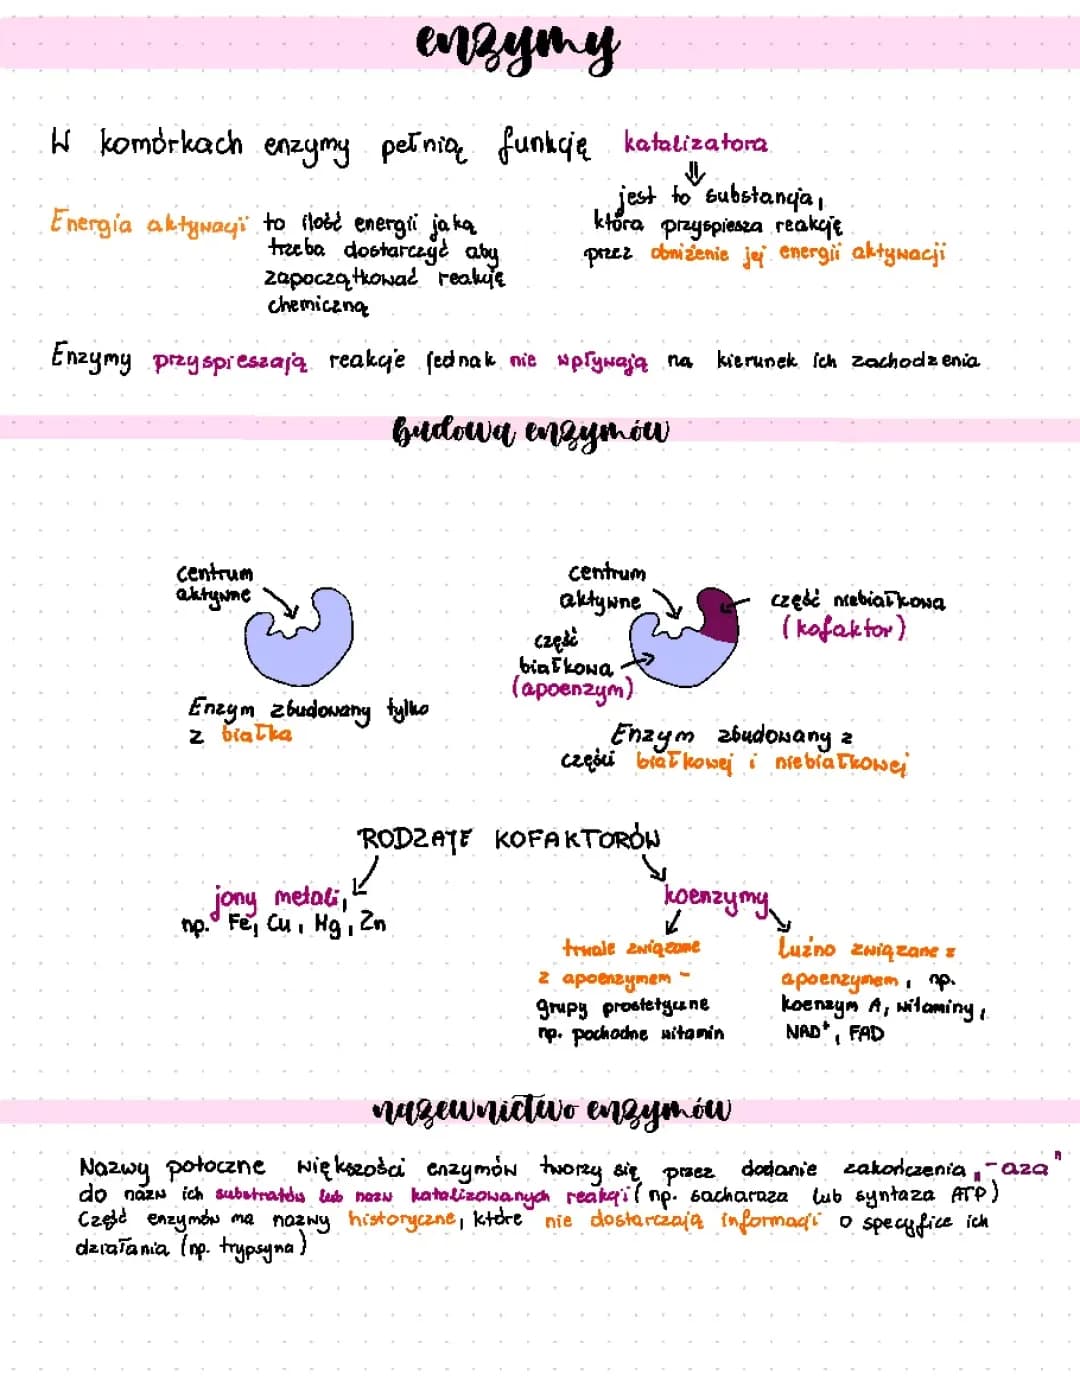 enzymy
W komórkach enzymy pełnią funkcję katalizatora
jest to substancja,
która przyspiesza reakcję
przez obniżenie jej energii aktywacji
Energia aktywacji to ilość energii jaką
trzeba dostarczyć aby
zapoczątkować reakcję
chemiczną
Enzymy przyspieszają reakcje jednak nie wpływają na kierunek ich zachodzenia
budowa enzymów
centrum
aktywne
Enzym zbudowany tylko
z białka
centrum
aktywne
część niebiałkowa
(kofaktor)
część
białkowa
(apoenzym)
Enzym zbudowany z
części białkowej i niebiałkowej
RODZAJE KOFAKTORÓW
jony metali,
np. Fe, Cu, Mg, Zn
koenzymy
trwale związane
z apoenzymem -
grupy prostetyczne
np. pochodne witamin
luźno związane z
apoenzymem, np.
koenzym A, witaminy,
NAD⁺, FAD
nazewnictwo enzymów
Nazwy potoczne większości enzymów tworzy się przez dodanie zakończenia „-aza"
do nazw ich substratów lub nazw katalizowanych reakcji (np. sacharaza lub syntaza ATP)
Część enzymów ma nazwy historyczne, które nie dostarczają informacji o specyfice ich
działania (np. trypsyna)